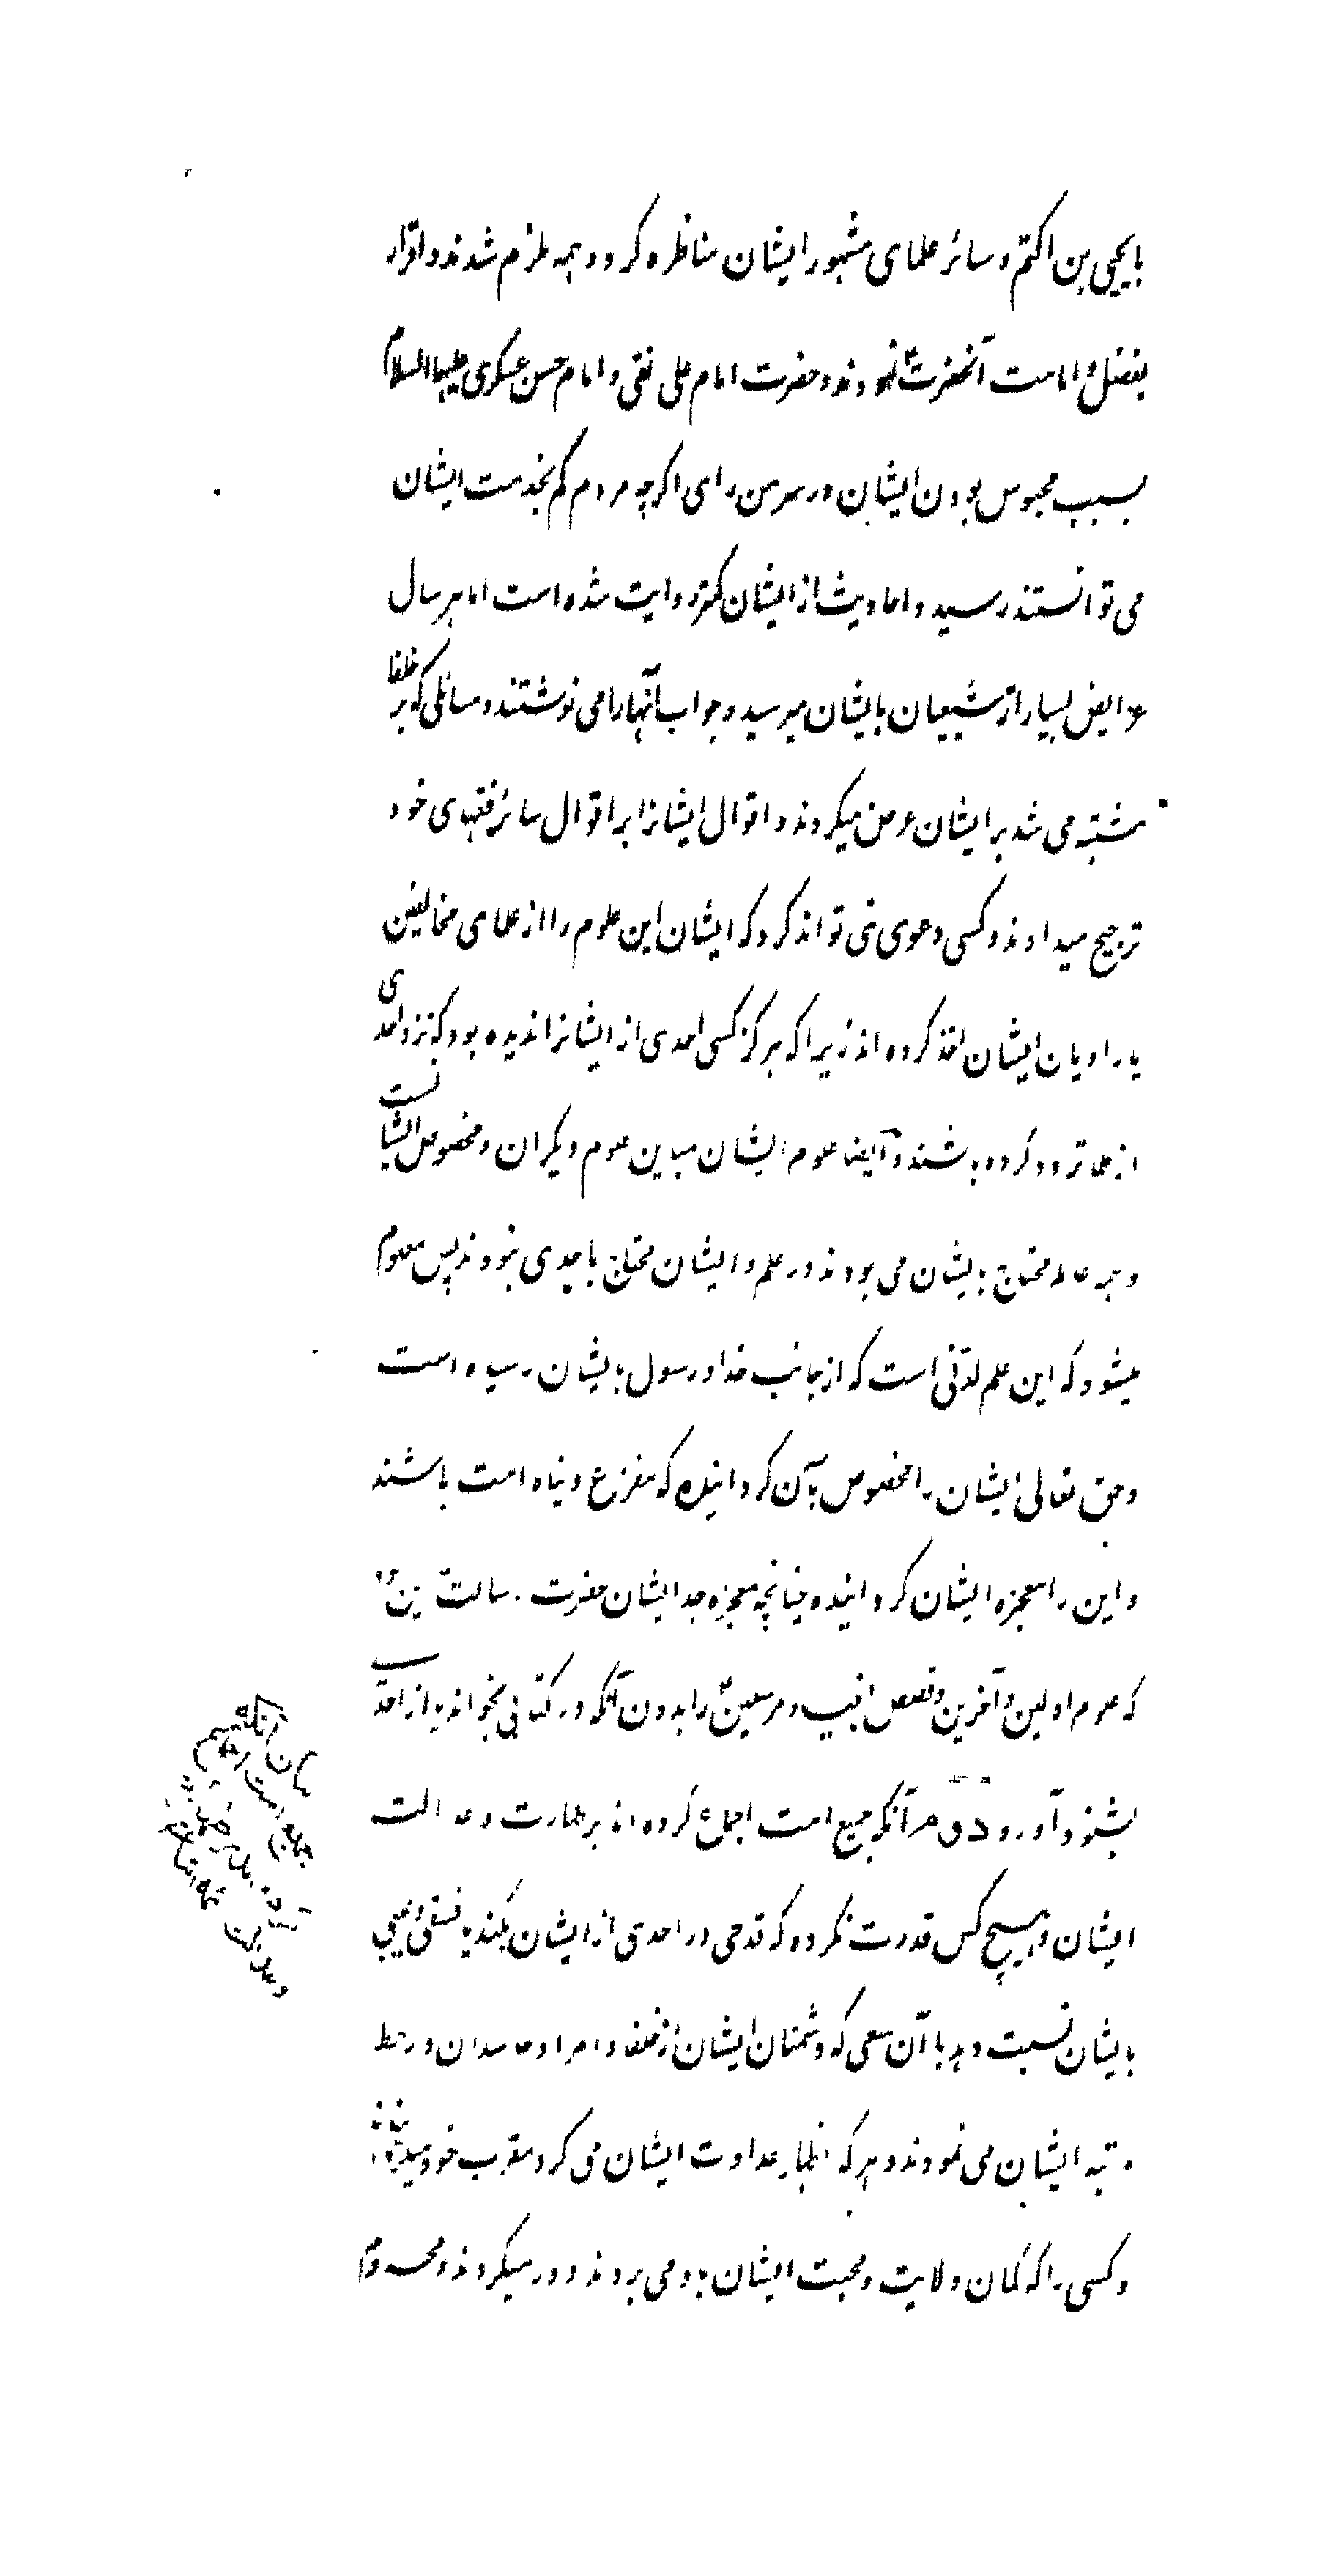 با یحیی بن اکثم و سائر علمای مشهور ایشان مناظره کرد و همه ملزم شدند و اقرار
بفضل و امامت آنحضرت نمودند و حضرت امام علی نقی و امام حسن عسکری علیهما السلام
بسبب محبوس بودن ایشان در سر من رای اگرچه مردم کم بخدمت ایشان
می توانستند رسید و احادیث از ایشان کمتر روایت شده است اما هر سال
عرایض بسیار از شیعیان بایشان میرسید و جواب آنها را می نوشتند و مسائلی که بر خلفا
مشتبه می شد بر ایشان عرض میکردند و اقوال ایشانرا بر اقوال سائر فقهای خود
ترجیح میدادند و کسی دعوی نمی تواند کرد که ایشان این علوم را از علمای مخالفین
یا راویان ایشان اخذ کرده اند زیرا که هرگز کسی احدی از ایشانرا ندیده بود که نزد احدی
از علما تردد کرده باشند و ایضا علوم ایشان مباین علوم دیگران و مخصوص ایشانست
و همه علما محتاج بایشان می بودند در علم و ایشان محتاج باحدی نبودند پس معلوم
میشود که این علم لدنی است که از جانب خدا و رسول بایشان رسیده است
و حق تعالی ایشان را مخصوص بآن گردانیده که مفزع و پناه امت باشند
و این را معجزه ایشان گردانیده چنانچه معجزه جد ایشان حضرت رسالت این بود
که علوم اولین و آخرین و قصص انبیا و مرسلین را بدون آنکه در کتابی بخواند یا از احدی
بشنود آورد دوم آنکه جمیع امت اجماع کرده اند بر طهارت و عدالت
ایشان و هیچ کس قدرت نکرده که قدحی در احدی از ایشان بکند یا فسقی و عیبی
بایشان نسبت دهد با آن سعی که دشمنان ایشان از خلفا و امرا و حاسدان در حط
مرتبه ایشان می نمودند و هر که اظهار عداوت ایشان می کرد مقرب خود
و کسی را که گمان ولایت و محبت ایشان باو می بردند دور میکردند و محروم
بیان آنکه
جمیع امت